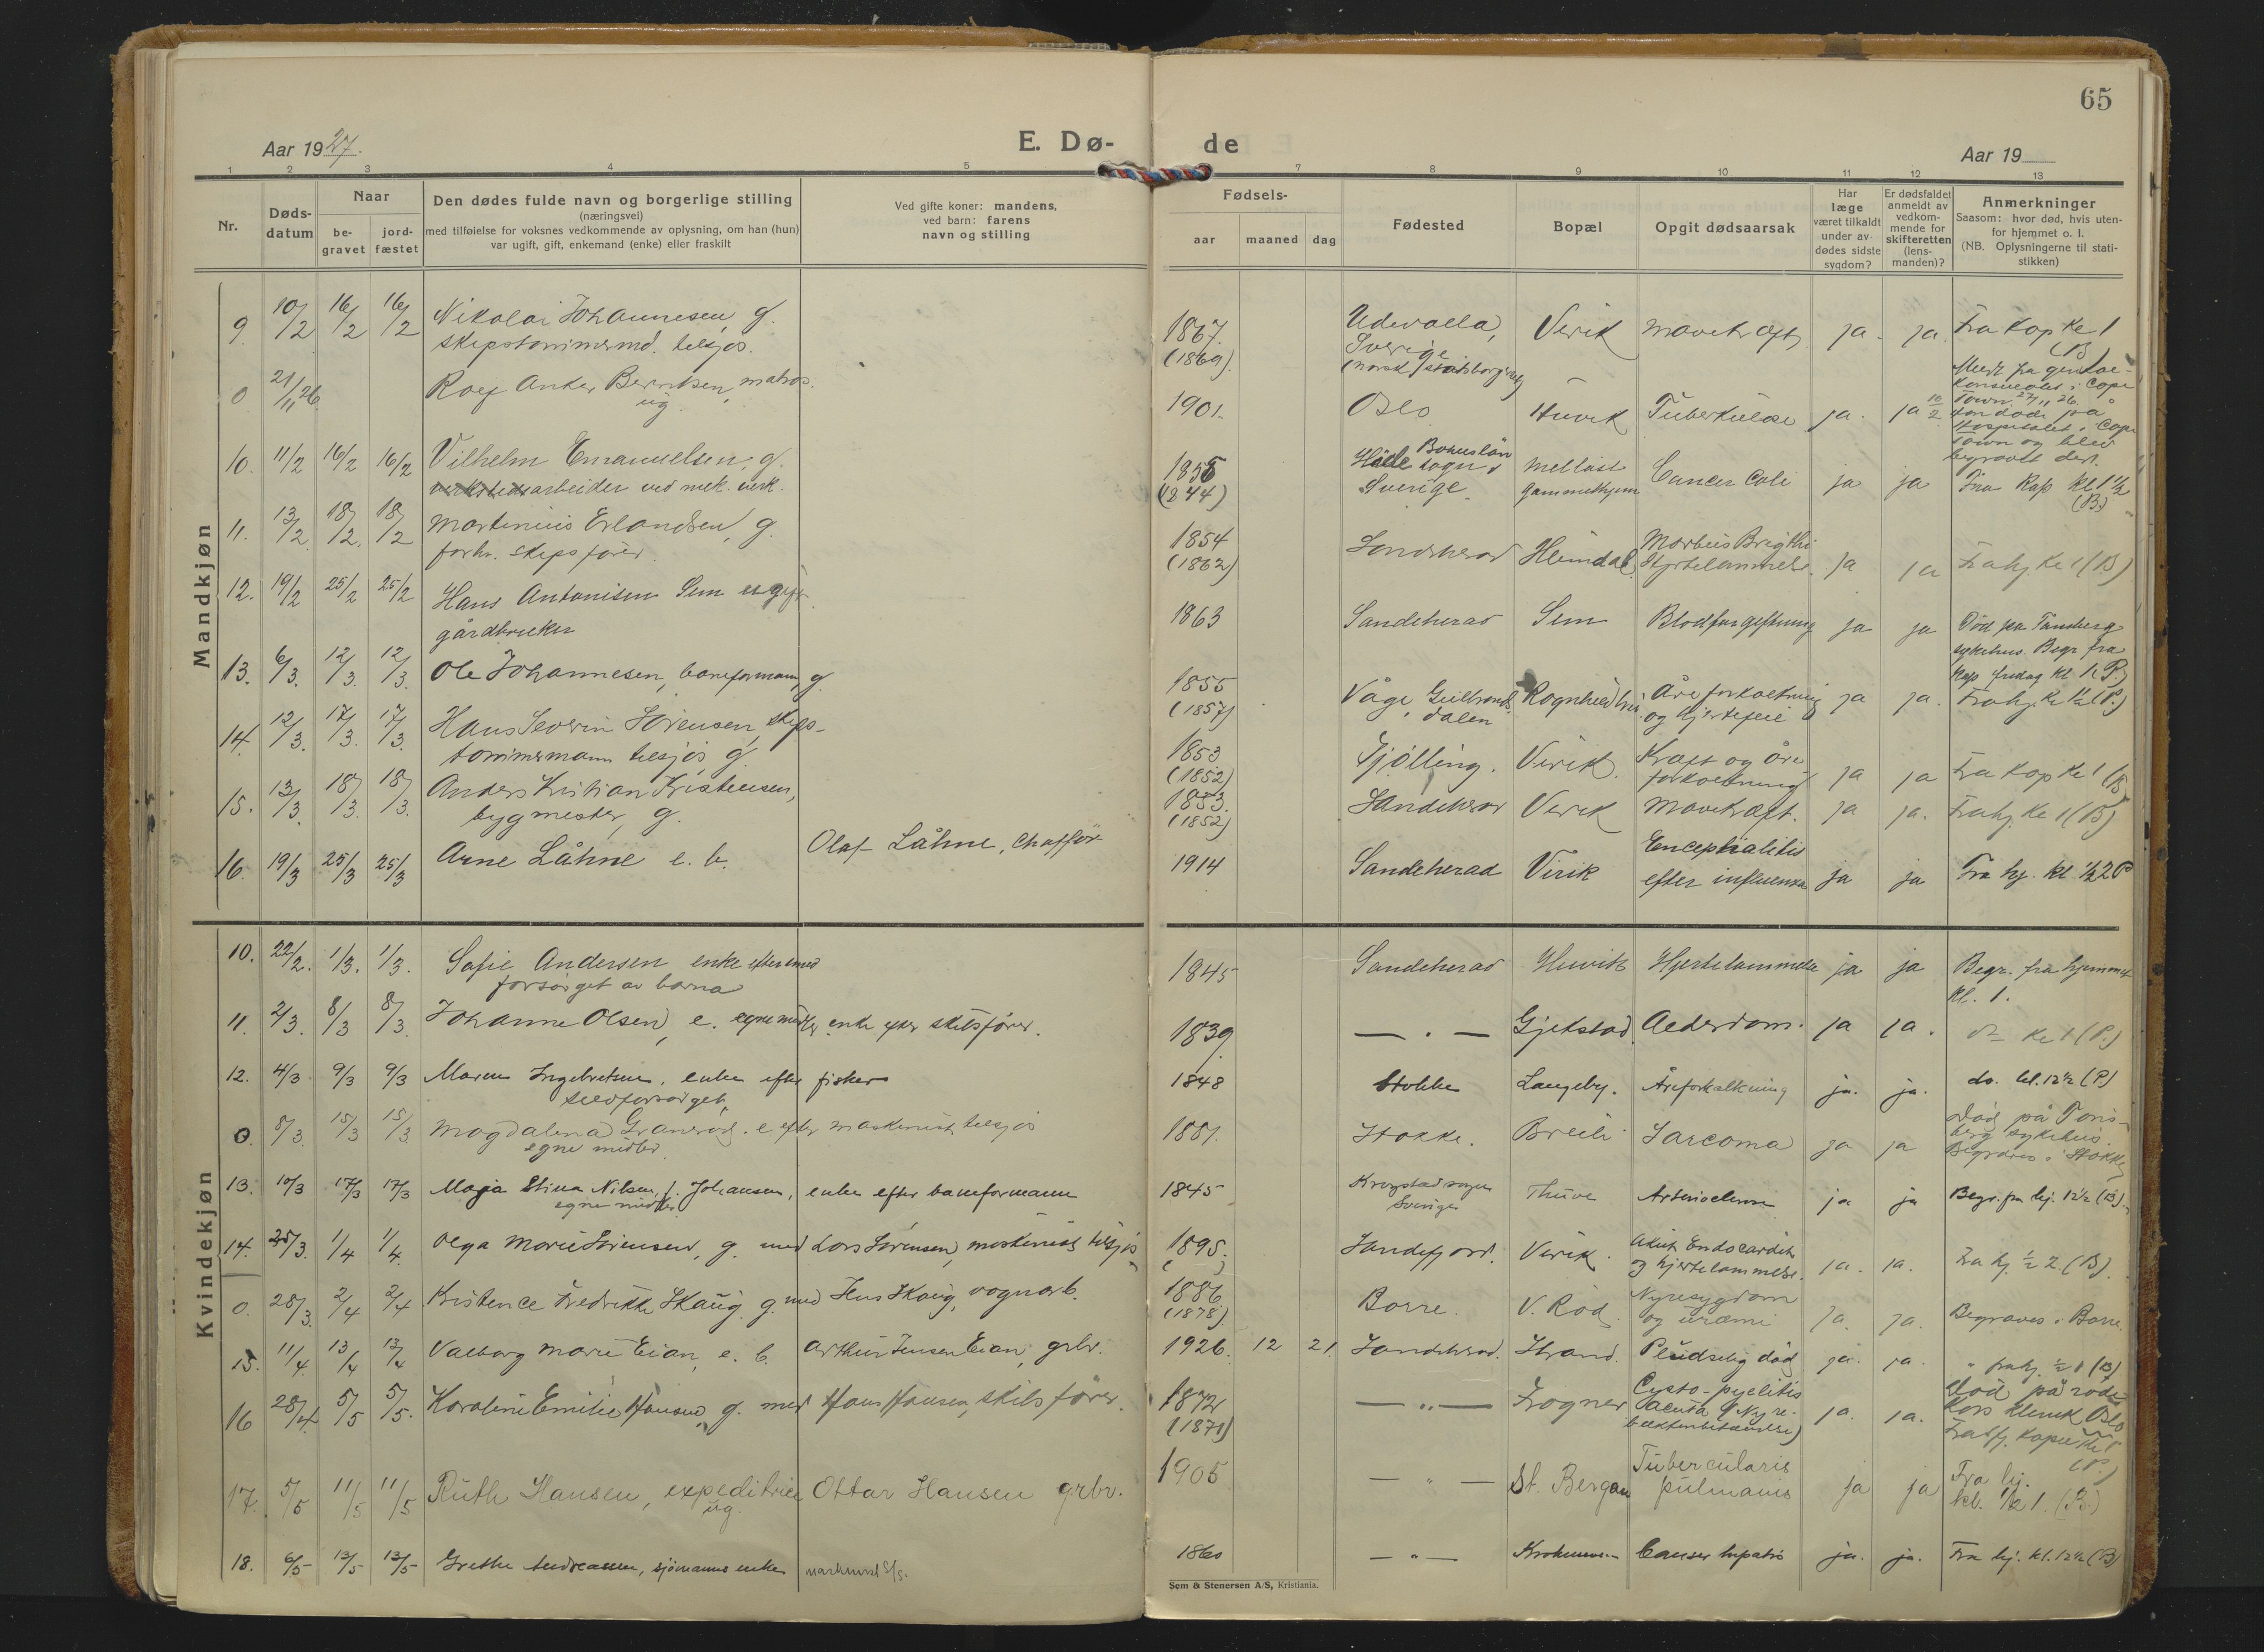 65
Aar 1927.
E. Dø-
de
Aar 19
1 2 3 4 5 7 8 9 10 11 12 13
Nr.
Døds-
datum
Naar
be-
gravet
jord-
fæstet
Den dødes fulde navn og borgerlige stilling
(næringsvei)
med tilføielse for voksnes vedkommende av oplysning, om han (hun)
var ugift, gift, enkemand (enke) eller fraskilt
Ved gifte koner: mandens,
ved barn: farens
navn og stilling
Fødsels-
aar maaned dag
Fødested
Bopæl
Opgit dødsaarsak
Har
læge
været tilkaldt
under av-
dødes sidste
sygdom?
Er dødsfaldet
anmeldt av
vedkom-
mende for
skifteretten
(lens-
manden)?
Anmerkninger
Saasom: hvor død, hvis uten-
for hjemmet o. l.
(NB. Oplysningerne til stati-
stikken)
Mandkjøn
9. 10/2 16/2 16/2 Nikolai Johannesen, g.
skipstømmermd. tilsjøs.
1867. (1869). Udevalla, Sverige (norsk statsborger) Virik Mavekræft ja. ja. Fra kap kl 1 (B)
0 21/11 26 Rolf Anker Berntsen, matros.
ug.
1901. Oslo Huvik Tuberkulose ja. ja 10/2
Town 27/11 26.
Han døde på
Hospitalet i Cape
Town og blev
begravet der.
10. 11/2 16/2 16/2 Vilhelm Emanuelsen, g.
arbeider ved mek. verk.
1855 (1844) sogn, Bohuslän Sverige. Gammelhjem Cancer Coli ja ja Fra Kap kl. 1 1/2 (B.)
11. 13/2 18/2 18/2 Martinius Erlandsen, g.
forhv. skipsfører
1854 (1862) Sandeherad Heimdal Morbus Brigthi Hjertelammelse. ja ja Fra hj. kl 1 (B)
12. 19/2 25/2 25/2 Hans Antonisen Sem ugift
gårdbruker
1863 Sandeherad Sem Blodforgiftning ja ja Død på Tønsberg
sykehus. Begr fra
Kap fredag kl. 1 (P.)
13. 6/3. 12/3. 12/3. Ole Johannesen, baneformann, g.
1855 (1857) Våge, Gudbrands- dalen Åreforkalkning og hjertefeil ja ja. Fra hj. kl 1/2 (P.)
14. 12/3. 17/3. 17/3. Hans Severin Sörensen, skips-
tømmermann tilsjøs, g.
1853 (1852) Tjølling. Virik. Kræft og åre- forkalkning ja ja Fra kap kl 1 (B)
15. 13/3. 18/3. 18/3. Anders Kristian Kristensen,
bygmester, g.
1853. (1852) Sandeherad Virik Mavekræft. ja ja. Fra hj. kl 1 (B)
16. 19/3 25/3 25/3 Arne Låhne e. b. Olaf Låhne, chaffør
1914 Sandeherad Virik Encephalitis efter influenza ja ja Fra hj. kl. 1/2 2 P
Kvindekjøn
10. 22/2. 1/3. 1/3. Sofie Andersen enke
forsørget av barna
1845 Sandeherad Huvik Hjertelammelse ja ja Begr. fra hjemmet
kl. 1.
11. 2/3. 8/3 8/3. Johanne Olsen, e. egne midler, enke efter skibsfører.
1839. — " — Gjekstad Alderdom. ja ja. do kl 1 (P.)
12. 4/3 9/3 9/3 Maren Ingebretsen, enke efter fisker
selvforsørget,
1848 Stokke Langeby. Åreforkalkning ja. ja. do. kl. 12 1/2 (P)
0. 8/3. 15/3 15/3 Magdalena Granerød. e. efter maskinist tilsjøs
egne midler.
1881. Stokke. Breili Sarcoma ja ja Død på Tøns-
berg sykehus.
Begraves i Stokke
13. 10/3 17/3 17/3 Maja Stina Nilsen, f. Johansen, enke efter baneformann
egne midler
1845 Krogstad sogn Sverige Thuve ja ja Begr. fra hj. 12 1/2 (B).
14. 25/3. 1/4 1/4. Olga Marie Sörensen, g. med Lars Sörensen, maskinist tilsjøs
1895. Sandefjord. Virik. Akut Endocardit og hjertelammelse. ja. ja. Fra hj. 1/2 2. (B).
0. 28/3. 2/4 2/4 Kristence Fredrikke Skaug g. med Jens Skaug, vognarb.
1886 (1878) Borre. V. Rød Nyresygdom og uræmi ja. ja. Begraves i Borre.
15. 11/4. 13/4 13/4 Valborg Marie Eian, e. b. Arthur Jensen Eian, grbr.
1926. 12 21. Sandeherad. Strand Pludselig død ja. ja. " fra hj. 1/2 1 (B)
16 28/4. 5/5 5/5. Karoline Emilie Hansen, g. med Hans Hansen, skibsfører.
1872 (1871) — " — Fogner Cysto-pyelitis acuta (Nyre- bækkenbetændelse) ja. ja. Død på røde
Kors klinik Oslo
17. 5/5 11/5 11/5 Ruth Hansen, expeditrice Ottar Hansen grbr.
ug.
1905 — " — St. Bergan Tubercularis pulmanis ja ja Fra hj.
kl. 1/2 1. (B.)
18. 6/5 13/5 13/5 Grethe Andreassen, sjømanns enke
1860 — " — Cancer hepatis ja. ja. Fra hj. kl. 12 1/2 (B)
Sem & Stenersen A/S, Kristiania.